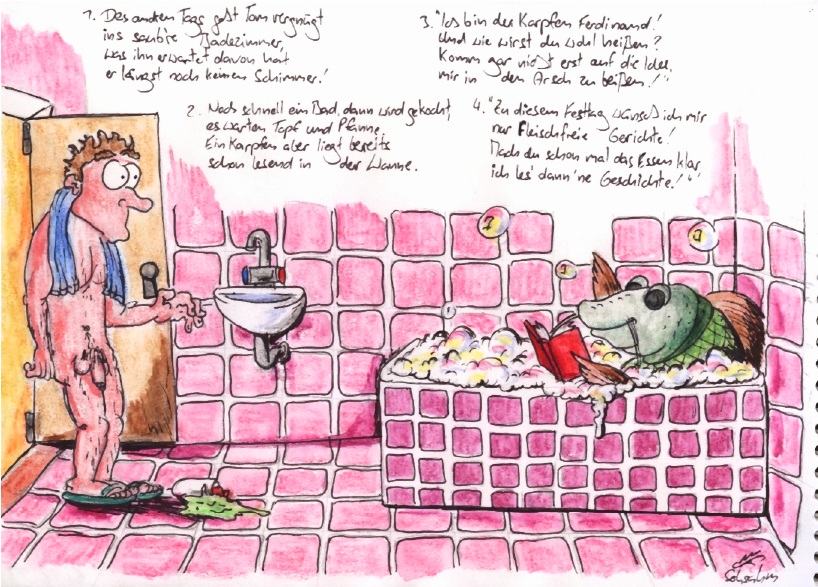 1. Des andren Tags geht Tom vergnügt
ins saub're Badezimmer,
was ihn erwartet davon hat
er längst noch keinen Schimmer!
2. Noch schnell ein Bad, dann wird gekocht,
es warten Topf und Pfanne,
Ein Karpfen aber liegt bereits
schon lesend in der Wanne.
3. "Ich bin der Karpfen Ferdinand!
Und wie wirst du wohl heißen?
Komm gar nicht erst auf die Idee,
mir in den Arsch zu beißen!"
4. "Zu diesem Festtag wünsch ich mir
nur Fleischfreie Gerichte!
Mach du schon mal das Essen klar
ich les' dann 'ne Geschichte!"